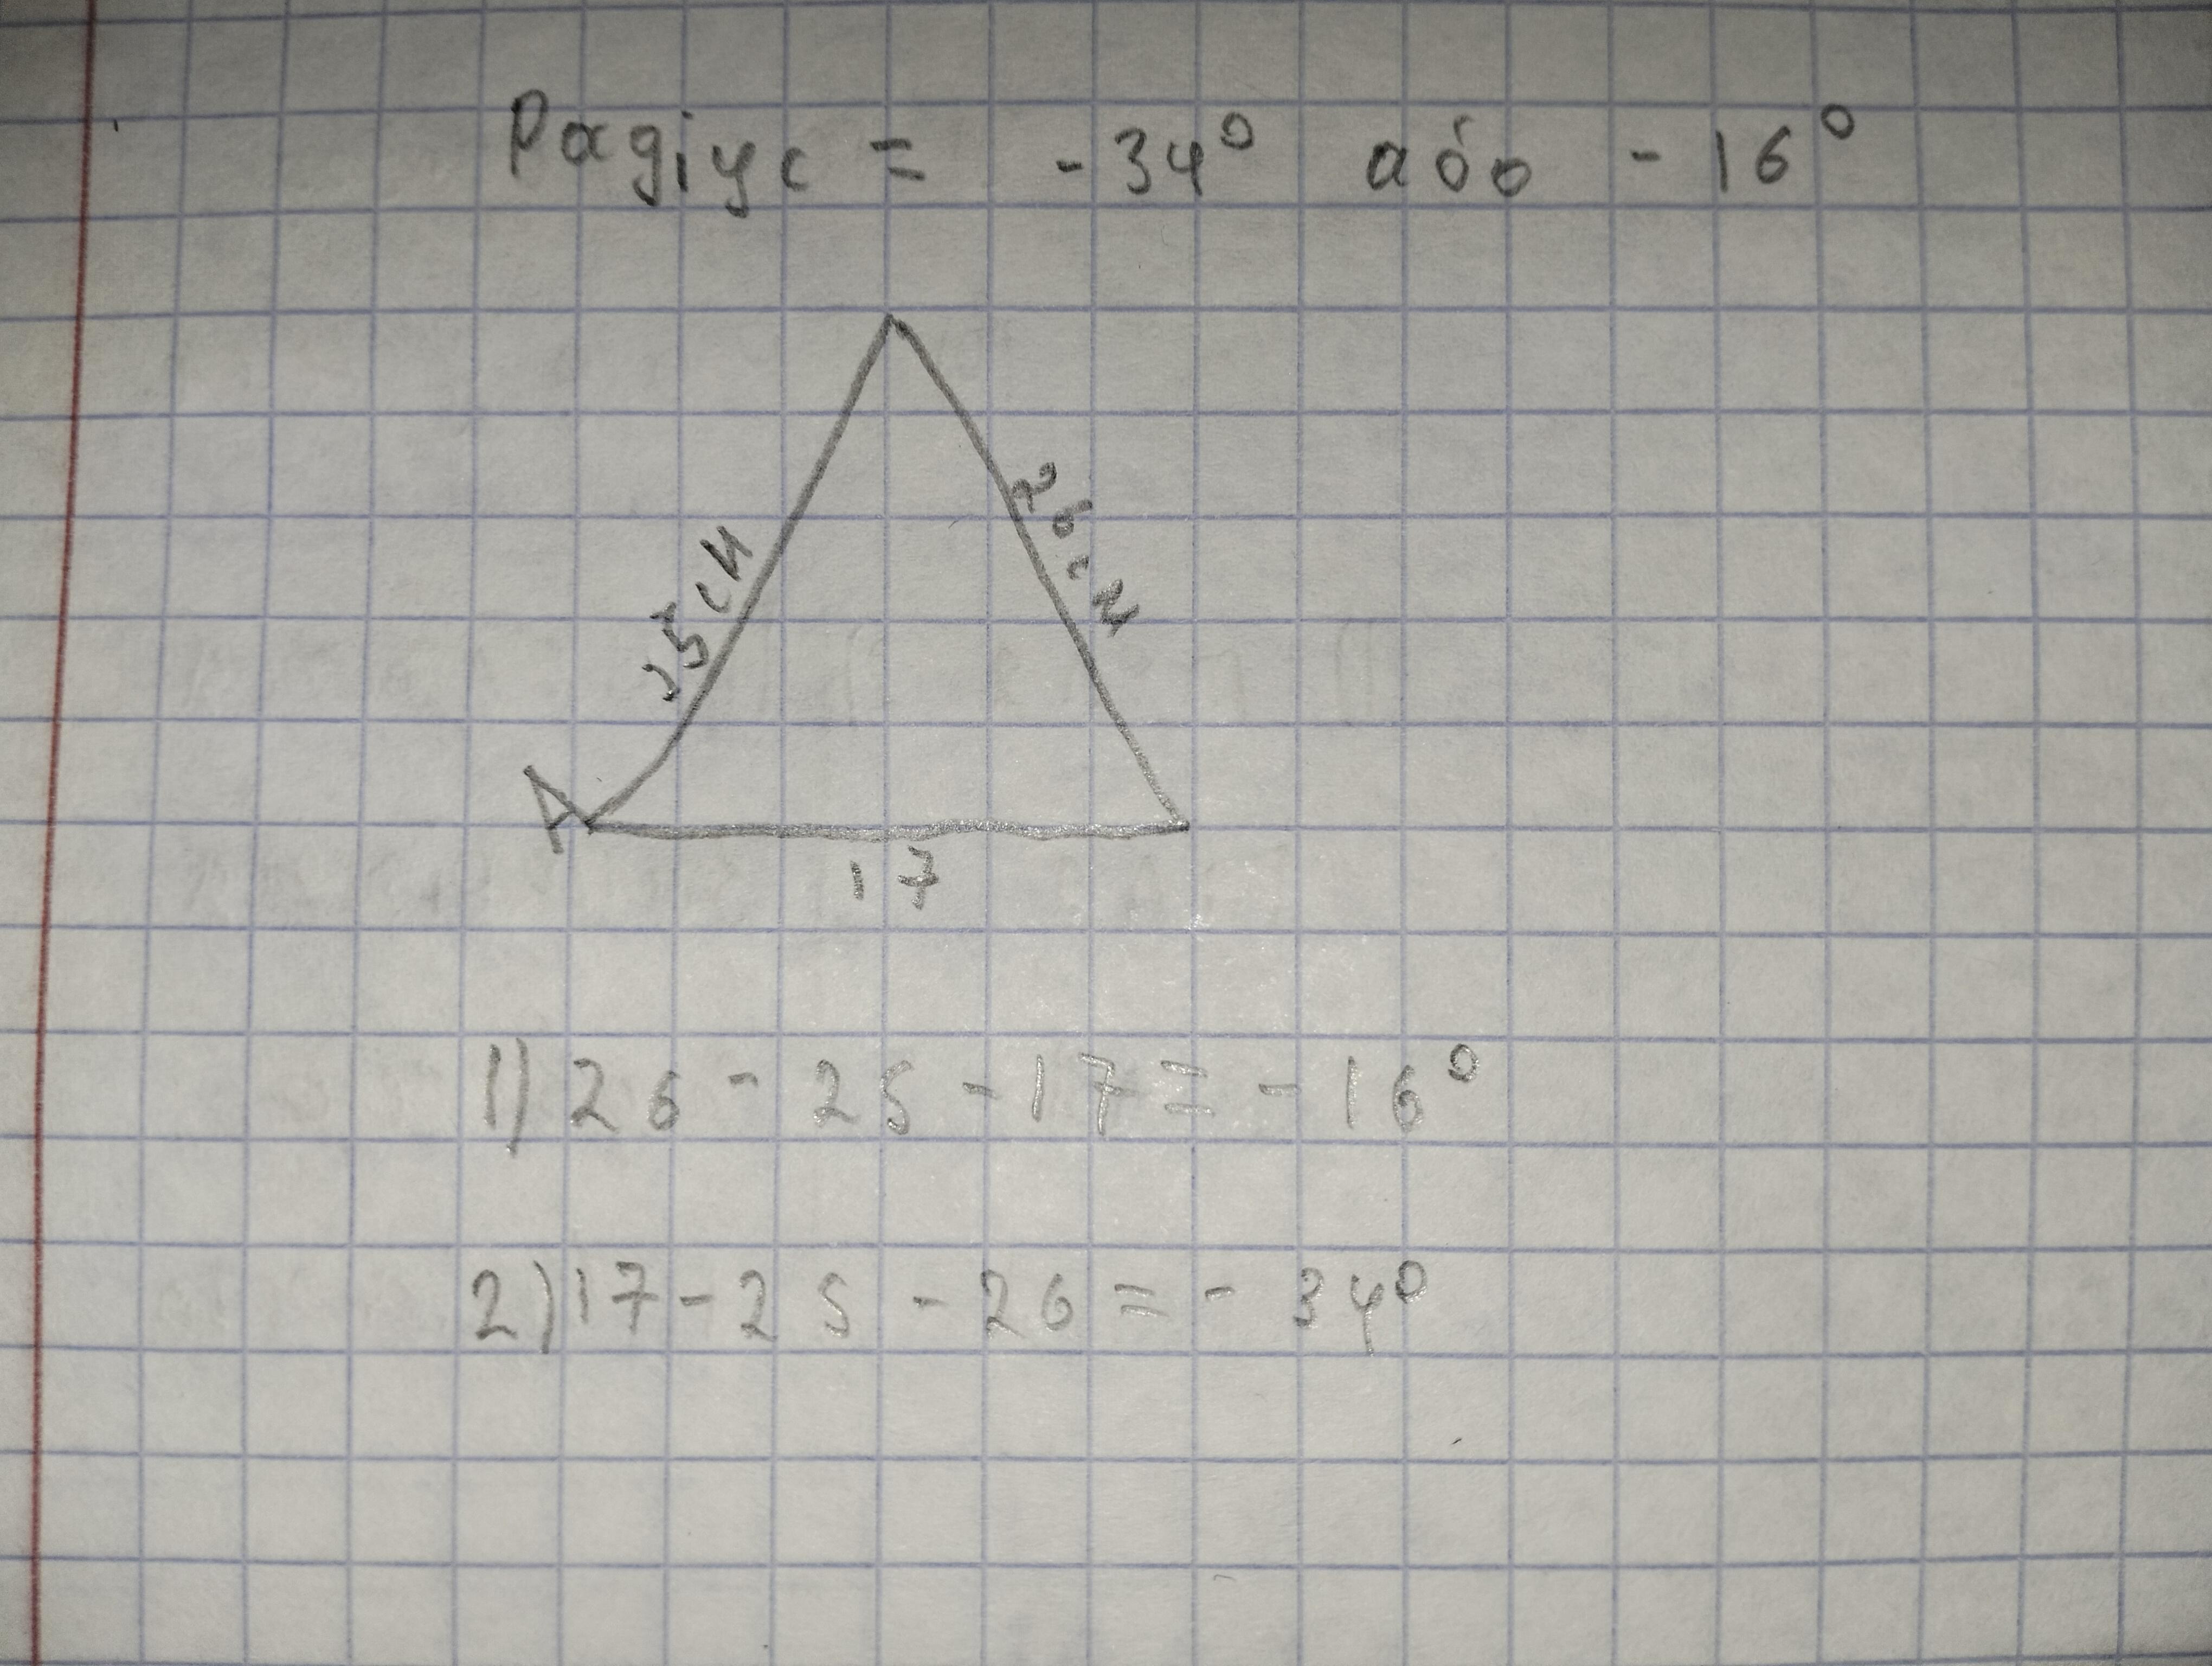 Радіус = -34° або -16°
25см
26см
A
17
1) 26 - 25 - 17 = -16°
2) 17 - 25 - 26 = -34°